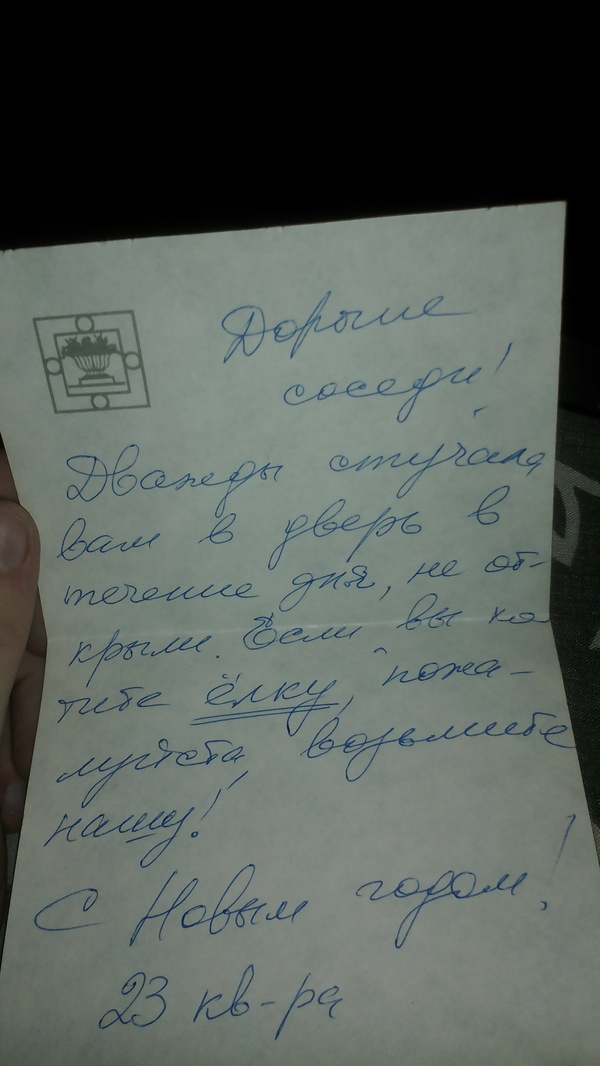 Дорогие
соседи!
Дважды стучала
вам в дверь в
течение дня, не от-
крыли. Если вы хо
тите ёлку, пожа-
луйста, возьмите
нашу!
С Новым годом!
23 кв-ра